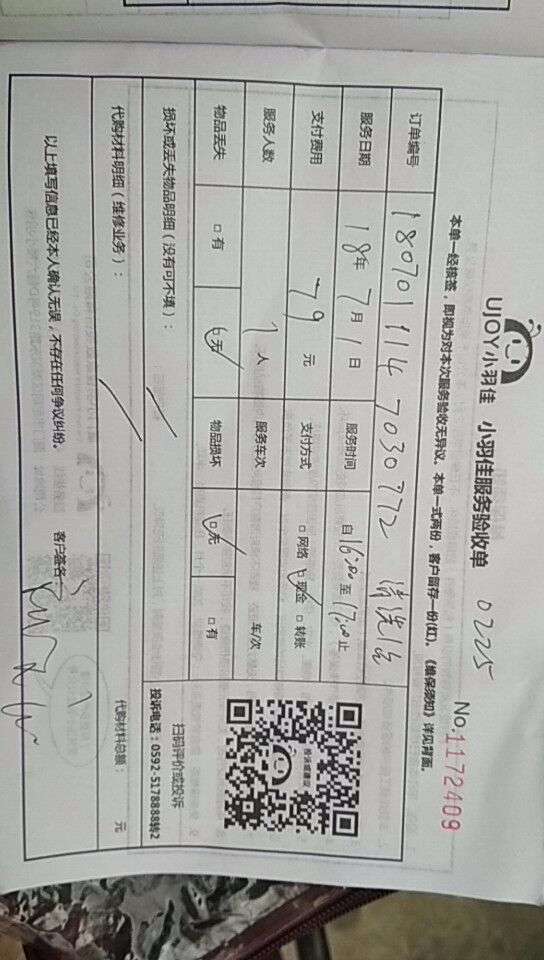 UJOY小羽佳 小羽佳服务验收单 0225
No:1172409
本单一经核签，即视为对本次服务验收无异议。本单一式两份，客户留存一份(红)。《维保须知》详见背面。
订单编号 180701114 7030772 清洗1台
服务日期 18年 7月 1日 服务时间 自16:00至17:00止
支付费用 79 元 支付方式 □网络 □现金 □转账
服务人数 1人 服务车次 车/次
物品丢失 □有 □无 物品损坏 □无 □有
损坏或丢失物品明细（没有可不填）：
扫码评价或投诉
投诉电话：0592-5178888转2
代购材料明细（维修业务）： 代购材料总额： 元
以上填写信息已经本人确认无误，不存在任何争议纠纷。 客户签名：